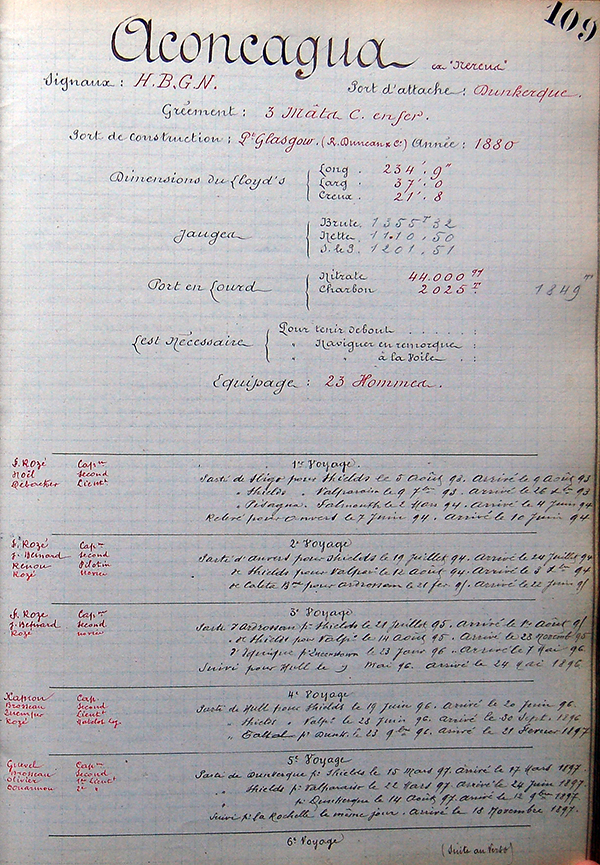 109
Aconcagua ex "Nereus"
Signaux : H.B.G.N. Port d'attache : Dunkerque.
Gréement : 3 Mâts C. en fer.
Port de construction : Pt Glasgow. (R. Duncan & Co) Année : 1880
Dimensions du Lloyd's
Long . 234'. 9"
Larg . 37'. 0
Creux . 21'. 8
Jauges
Brute. 1355 Tx 32
Nette. 1110. 50
1201. 51
Port en Lourd
Nitrate 44.000 qx
Charbon 2025 T. 1849
Lest Nécessaire
Pour tenir debout . . . . . :
" Naviguer en remorque :
" " à la Voile . . :
Equipage : 23 Hommes.
1er Voyage.
F. Rozé Capne
Noël Second
Débacker Lieutt
Parti de Sligo pour Shields le 5 Août 93. Arrivé le 9 Août 93
" Shields " Valparaiso le 9 7bre 93. Arrivé le 93
" Pisagua. Falmouth 2 Mars 94. Arrivé le 4 Juin 94
Relevé pour Anvers le 7 Juin 94. Arrivé le 10 Juin 94
2e Voyage
F. Rozé Capne
J. Bernard Second
Renou Pilotin
Rozé Novice
Parti d'Anvers pour Shields le 19 Juillet 94. Arrivé le 24 Juillet 94
" de Shields pour Valpso le 12 Août 94. Arrivé le 94
" de Caleta Bna pour Ardrossan le 21 fev. 95. Arrivé le 22 Juin 95
3e Voyage
F. Rozé Capne
J. Bernard Second
Rozé novice
Parti d'Ardrossan pr Shields le 21 Juillet 95. Arrivé le 1er Août 95
" de Shields pour Valpo le 14 Août 95. Arrivé le 23 Novemb 95
" d'Iquique pr Queenstown le 23 Janv 96. Arrivé le 7 Mai 96.
Suivi pour Hull le 9 Mai 96. Arrivé le 24 Mai 1896
4e Voyage
Cap.
Brosseau Second
Lieut
Rozé
Parti de Hull pour Shields le 19 Juin 96. Arrivé le 20 Juin 96.
" Shields " Valpo le 23 Juin 96. Arrivé le 30 Sept. 1896
" pr Dunk. le 23 9bre 96. Arrivé le 21 Février 1897
5e Voyage
Capne
Brosseau Second
Olivier 1er Lieutt
2e "
Parti de Dunkerque pr Shields le 15 Mars 97. Arrivé le 17 Mars 1897.
" Shields pr Valparaiso le 22 Mars 97. Arrivé le 24 Juin 1897.
" pr Dunkerque le 14 Août 97. Arrivé le 12 9bre 1897.
Suivi pr la Rochelle le même jour. Arrivé le 18 Novembre 1897.
6e Voyage
(Suite au Verso)